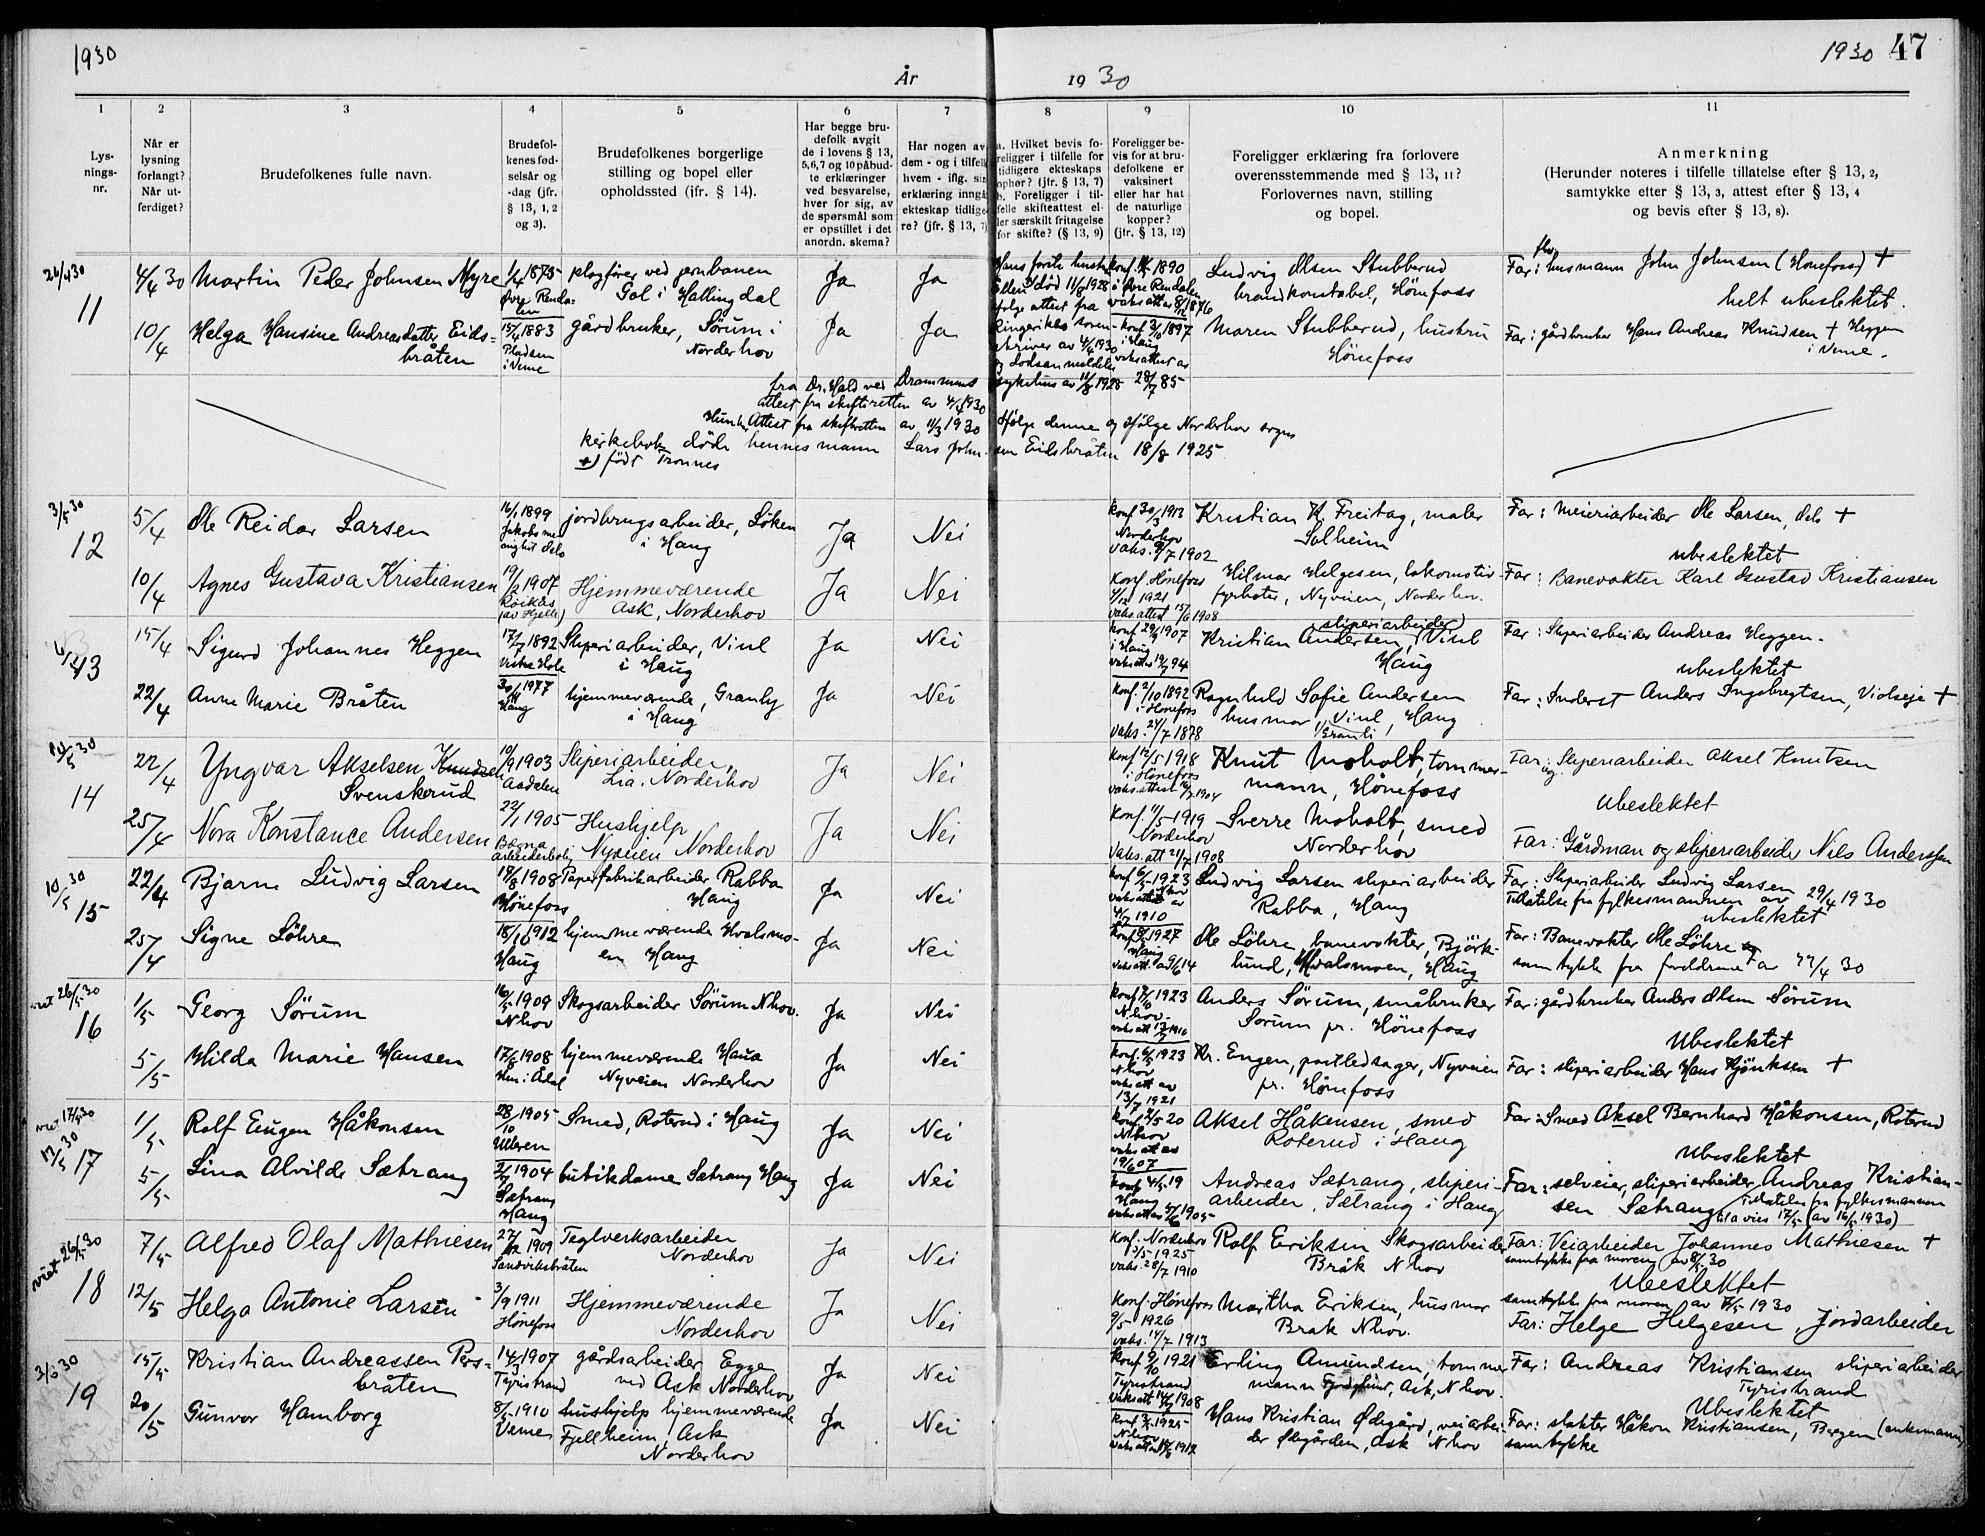 1930
År 1930
1930 47
1 2 3 4 5 6 7 8 9 10 11
Lys-
nings-
nr.
Når er
lysning
forlangt?
Når ut-
ferdiget?
Brudefolkenes fulle navn.
Brudefol-
kenes fød-
selsår og
-dag (jfr.
§ 13, 1, 2
og 3).
Brudefolkenes borgerlige
stilling og bopel eller
opholdssted (ifr. § 14).
Har begge bru-
defolk avgit
de i lovens § 13,
5,6,7 og 10 påbud-
te erklæringer
ved besvarelse,
hver for sig, av
de spørsmål som
er opstillet i det
anordn. skema?
Har nogen av
dem - og i tilfelle
hvem - iflg. sin
erklæring inngå
ekteskap tidlige-
re? (jfr. § 13, 7)
a. Hvilket bevis fo-
religger i tilfelle for
tidligere ekteskaps
ophør? (jfr. § 13, 7)
b. Foreligger i til-
felle skifteattest el-
ler særskilt fritagelse
for skifte? (§ 13, 9)
Foreligger be-
vis for at bru-
defolkene er
vaksinert
eller har hat
de naturlige
kopper?
(jfr. § 13, 12)
Foreligger erklæring fra forlovere
overensstemmende med § 13, 11?
Forlovernes navn, stilling
og bopel.
Anmerkning
(Herunder noteres i tilfelle tillatelse efter § 13, 2,
samtykke efter § 13, 3, attest efter § 13, 4
og bevis efter § 13, 8).
26/4 30
11
4/4 30 Martin Peder Johnsen Myre
1/4 1875
Øvre Renda-
len
plogfører ved jernbanen
Gol i Hallingdal
Ja Ja
Hans første hustru
Ellen død 11/8 1928
følge attest fra
Ringerikes soren-
skriver av 4/4 1930
og dødsanmeldelse
konf. 1890
i Øvre Rendalen
vaks.att. 8/12 1876
Ludvig Olsen Stubberud
brandkonstabel, Hønefoss
Far: husmann John Johnsen (Hønefoss) +
helt ubeslektet.
10/4 Helga Hansine Andreasdatter Eids-
bråten
15/4 1883
Pladsen
i Veme
gårdbruker, Sørum i
Norderhov
Ja Ja
konf. 3/10 1897
i Haug
vaksattest av
28/7 85
Maren Stubberud, hustru
Hønefoss
Far: gårdbruker Hans Andreas Knudsen + Heggen
i Veme.
fra Dr. Hald ved Drammens sykehus av 11/8 1928
attest fra skifteretten av 4/4 1930
Hun har Attest fra skifteretten av 11/3 1930 Ifølge denne og ifølge Norderhov sogns
kirkebok døde hennes mann Lars John-sen Eidsbråten 18/8 1925
+) født Trønnes
3/5 30
12
5/4 Ole Reidar Larsen
16/1 1899
Jakobs me-
nighet Oslo
jordbrugsarbeider, Löken
i Haug
Ja Nei
konf 30/3 1913
Norderhov
vaks. 9/7 1902
Kristian K. Freitag, maler
Solheim
Far: Meieriarbeider Ole Larsen, Oslo +
ubeslektet
10/4 Agnes Gustava Kristiansen
19/2 1907
Röikås
(av Hjelle)
Hjemmeværende
Ask, Norderhov
Ja Nei
Konf. Hönefoss
4/12 1921
vaks.attest 15/6 1908
Hilmar Helgesen, lokomotiv-
fyrbøter, Nyveien, Norderhov.
Far: Banevokter Karl Gustav Kristiansen
13
15/4 Sigurd Johannes Heggen
17/7 1892
Vestre Hole
Sliperiarbeider, Viul
i Haug
Ja Nei
konf 29/9 1907
i Haug
vaksattest 19/7 94
sliperiarbeider
Kristian Andersen, Viul
Haug
Far: Sliperiarbeider Andreas Heggen.
ubeslektet
22/4 Anne Marie Bråten
30/11 1977
Haug
hjemmeværende, Granly
i Haug
Ja Nei
konf. 2/10 1892
i Hönefoss
vaks. 24/7 1878
Ragnhild Sofie Andersen
husmor, Viul, Haug
Granli
Far: Inderst Anders Ingebregtsen, Violseje +
10/5 30
14
22/4 Yngvar Akselsen Knudsen
Svenskerud
10/9 1903
Aadalen
Sliperiarbeider,
Lia, Norderhov
Ja Nei
Konf 12/5 1918
i Hönefoss
vaks.attest 16/7 1904
Knut Moholt, tommer-
mann, Hönefoss
Far: Sliperiarbeider Aksel Knutsen
Ubeslektet
25/4 Nora Konstance Andersen
22/1 1905
Bægna
arbeiderbolig
Hushjelp
Nyveien Norderhov
Ja Nei
Konf. 11/5 1919
Norderhov
Vaks. att 21/7 1908
Sverre Moholt, smed
Norderhov
Far: Gårdman og sliperiarbeider Nils Anderssen
10/5 30
15
22/4 Bjarne Ludvig Larsen
14/8 1908
Hönefoss
Papirfabrikarbeider Rabba
Haug
Ja Nei
konf 6/5 1923
Nhov
vaksattest av
4/7 1910
Ludvig Larsen sliperiarbeider
Rabba, Haug
Far: Sliperiarbeider Ludvig Larsen
Tillatelse fra fylkesmannen av 29/4 1930
ubeslektet
25/4 Signe Löhre
18/10 1912
Haug
hjemmeværende Hvalsmo-
en Haug
Ja Nei
konf 1927
Haug
vaks.att. av 9/6 14
Ole Löhre, banevokter, Björk-
lund, Hvalsmoen, Haug
Far: Banevokter Ole Löhre
samtykke fra foreldrene av 22/4 30
viet 26/5 30
16
1/5 Georg Sörum
16/5 1909
Nhov
Skogsarbeider Sörum Nhov.
Ja Nei
konf 7/10 1923
Nhov.
vaks att 1916
Anders Sörum, småbruker
Sorum pr. Hönefoss
Far: gårdbruker Anders Olsen Sörum
Ubeslektet
5/5 Hilda Marie Hansen
17/6 1908
Hen i Ådal
hjemmeværende Haua
Nyveien Norderhov
Ja Nei
konf. 6/5 1923
Nhov
vaks att av
13/7 1921
Kr. Engen, postledsager, Nyveien
pr. Hönefoss
Far: sliperiarbeider Hans Kjönksen +
viet 17/5 30
17/5 30
17
1/5 Rolf Eugen Håkonsen
28/10 1905
Ulleren
Smed, Roterud i Haug
Ja Nei
konf. 2/5 20
Nhov
vaks att av
19/6 07
Aksel Håkensen, smed
Roterud i Haug
Far: Smed Aksel Bernhard Håkonsen, Roterud
Ubeslektet
5/5 Lina Alvilde Sætrang
2/7 1904
Sætrang
Haug
butikdame Sætrang Haug
Ja Nei
konf 4/5 19
Haug
vaksattest 5/6 1905
Andreas Sætrang, sliperi-
arbeider, Sætrang i Haug
Far: selveier, sliperiarbeider Andreas Kristian-
sen Sætrang, Tillatelse fra fylkesmannen
til å vies 17/5 (av 16/5 1930)
viet 26/5 30
18
7/5 Alfred Olaf Mathiesen
27/12 1909
Sandviksbråten
Teglverksarbeider
Norderhov
Ja Nei
Konf. Norderhov
3/5 1925
vaks. 28/7 1910
Rolf Eriksen Skogsarbeider
Bråk Nhov
Far: Veiarbeider Johannes Mathiesen +
samtykke fra moren av 8/5 30
Ubeslektet
12/5 Helga Antonie Larsen
3/9 1911
Hönefoss
Hjemmeværende
Norderhov
Ja Nei
Konf. Hönefoss
9/5 1926
vaks. 14/7 1913
Martha Eriksen, husmor
Brak Nhov.
samtykke fra moren av 7/5 1930
Far: Helge Helgesen, Jordarbeider
3/6 30
19
15/5 Kristian Andreassen Pers-
bråten
14/3 1907
Tyristrand
gårdsarbeider Egge
ved Ask Norderhov
Ja Nei
konf. 9/10 1921
Tyristrand
vaks att 14/7 1908
Erling Amundsen, tommer
mann, Ask, Nhov.
Far: Andreas Kristiansen sliperiarbeider
Tyristrand
Ubeslektet
20/5 Gunvor Hamborg
8/5 1910
Veme
hushjelp hjemmeværende
Fjellheim, Ask
Norderhov
Ja Nei
konf. 1925
Nhov
vaks att 1912
Hans Kristian Ødegård, veiarbei-
der Ødegården, Ask Nhov
Far: slakter Håkon Kristiansen, Bergen (enkemann)
samtykke